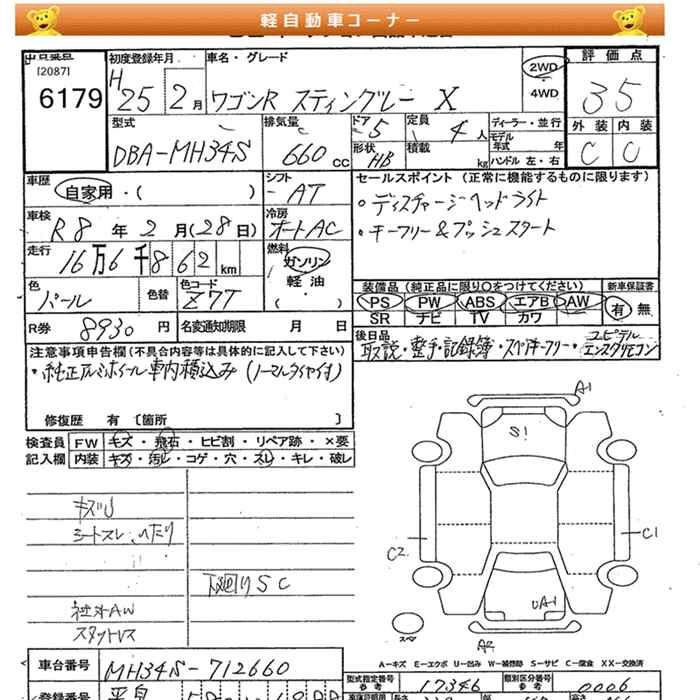 軽自動車コーナー
出品番号 初度登録年月 車名・グレード 2WD 4WD 評価点
[2087]
6179 H25 2月 ワゴンR スティングレー X 35
型式 排気量 ドア 5 定員 4人 ディーラー・並行 外装 内装
DBA-MH34S 660cc 形状 HB 積載 kg モデル年式 年 C C
ハンドル 左・右
車歴 自家用・( ) シフト AT セールスポイント (正常に機能するものに限ります)
車検 R8年2月(28日) 冷房 オートAC ・ディスチャージヘッドライト
・キーフリー&プッシュスタート
走行 16万6千862km 燃料 ガソリン・軽油( )
装備品 (純正品に限り○をつけてください) 新車保証書
色 パール 色替 色コード Z7T PS PW ABS エアB AW 有・無
SR ナビ TV カワ
R券 8930円 名変通知期限 月 日 後日品
取説・整手・記録簿・スペアキーフリー・ユピテルエンスタリモコン
注意事項申告欄(不具合内容等は具体的に記入して下さい)
・純正アルミホイール車内積込み(ノーマルタイヤ付)
修復歴 有 〔箇所 〕
検査員 FW キズ・飛石・ヒビ割・リペア跡・×要
記入欄 内装 キズ・汚レ・コゲ・穴・スレ・キレ・破レ
キズリ
シートスレ、へたり
下廻りSC
社外AW
スタットレス
A1
S!
C2
C1
UA1
スペア
A2
A-キズ E-エクボ U-凹み W-補修跡 S-サビ C-腐食 XX-交換済
車台番号 MH34S-712660
型式指定番号 参考 17346 類別区分番号 参考 0006
登録番号